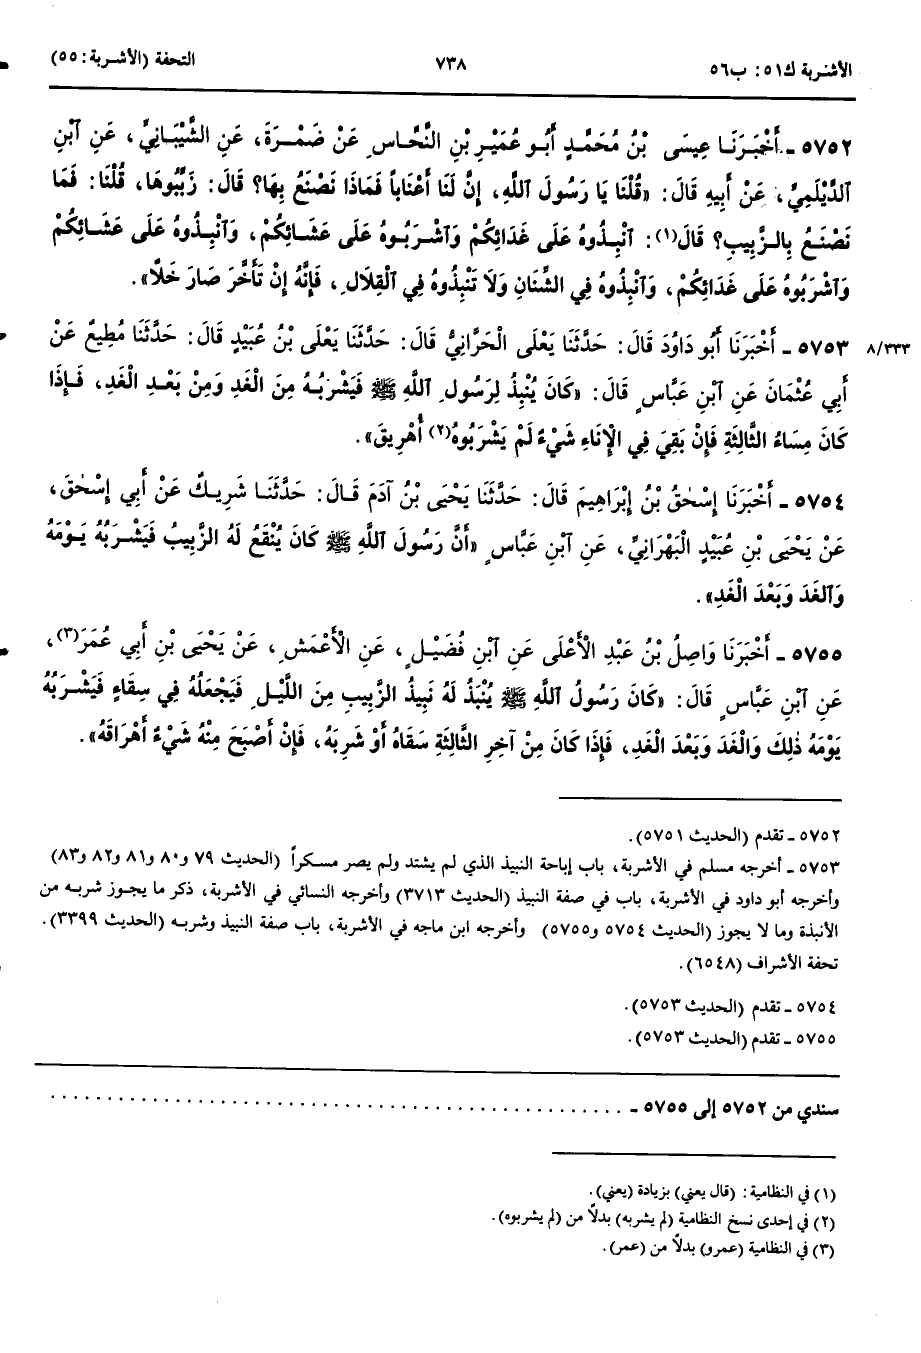 الأشربة ك٥١: ب٥٦ ٧٣٨ التحفة (الأشربة: ٥٥)
٥٧٥٢ ـ أَخْبَرَنَا عِيسَى بْنُ مُحَمَّدٍ أَبُو عُمَيْرِ بْنِ النَّحَّاسِ عَنْ ضَمْرَةَ، عَنِ الشَّيْبَانِيِّ، عَنِ ٱبْنِ
ٱلدَّيْلَمِيِّ، عَنْ أَبِيهِ قَالَ: «قُلْنَا يَا رَسُولَ ٱللَّهِ، إِنَّ لَنَا أَعْنَاباً فَمَاذَا نَصْنَعُ بِهَا؟ قَالَ: زَبِّبُوهَا، قُلْنَا: فَمَا
نَصْنَعُ بِالزَّبِيبِ؟ قَالَ(١): ٱنْبِذُوهُ عَلَى غَدَائِكُمْ وَٱشْرَبُوهُ عَلَى عَشَائِكُمْ، وَٱنْبِذُوهُ عَلَى عَشَائِكُمْ
وَٱشْرَبُوهُ عَلَى غَدَائِكُمْ، وَٱنْبِذُوهُ فِي الشِّنَانِ وَلَا تَنْبِذُوهُ فِي ٱلْقِلَالِ، فَإِنَّهُ إِنْ تَأَخَّرَ صَارَ خَلًّا».
٨/٣٣٣ ٥٧٥٣ ـ أَخْبَرَنَا أَبُو دَاوُدَ قَالَ: حَدَّثَنَا يَعْلَى الْحَرَّانِيُّ قَالَ: حَدَّثَنَا يَعْلَى بْنُ عُبَيْدٍ قَالَ: حَدَّثَنَا مُطِيعٌ عَنْ
أَبِي عُثْمَانَ عَنِ ٱبْنِ عَبَّاسٍ قَالَ: «كَانَ يُنْبِذُ لِرَسُولِ ٱللَّهِ ﷺ فَيَشْرَبُهُ مِنَ الْغَدِ وَمِنْ بَعْدِ الْغَدِ، فَإِذَا
كَانَ مِسَاءُ الثَّالِثَةِ فَإِنْ بَقِيَ فِي الْإِنَاءِ شَيْءٌ لَمْ يَشْرَبُوهُ(٢) أُهْرِيقَ».
٥٧٥٤ ـ أَخْبَرَنَا إِسْحٰقُ بْنُ إِبْرَاهِيمَ قَالَ: حَدَّثَنَا يَحْيَى بْنُ آدَمَ قَالَ: حَدَّثَنَا شَرِيكٌ عَنْ أَبِي إِسْحٰقَ،
عَنْ يَحْيَى بْنِ عُبَيْدٍ الْبَهْرَانِيِّ، عَنِ ٱبْنِ عَبَّاسٍ «أَنَّ رَسُولَ ٱللَّهِ ﷺ كَانَ يُنْقَعُ لَهُ الزَّبِيبُ فَيَشْرَبُهُ يَوْمَهُ
وَٱلْغَدَ وَبَعْدَ الْغَدِ».
٥٧٥٥ ـ أَخْبَرَنَا وَاصِلُ بْنُ عَبْدِ الْأَعْلَى عَنِ ٱبْنِ فُضَيْلٍ، عَنِ الْأَعْمَشِ، عَنْ يَحْيَى بْنِ أَبِي عُمَرَ(٣)،
عَنِ ٱبْنِ عَبَّاسٍ قَالَ: «كَانَ رَسُولُ ٱللَّهِ ﷺ يُنْبَذُ لَهُ نَبِيذُ الزَّبِيبِ مِنَ اللَّيْلِ فَيَجْعَلُهُ فِي سِقَاءٍ فَيَشْرَبُهُ
يَوْمَهُ ذٰلِكَ وَالْغَدَ وَبَعْدَ الْغَدِ، فَإِذَا كَانَ مِنْ آخِرِ الثَّالِثَةِ سَقَاهُ أَوْ شَرِبَهُ، فَإِنْ أَصْبَحَ مِنْهُ شَيْءٌ أَهْرَاقَهُ».
٥٧٥٢ ـ تقدم (الحديث ٥٧٥١).
٥٧٥٣ ـ أخرجه مسلم في الأشربة، باب إباحة النبيذ الذي لم يشتد ولم يصر مسكراً (الحديث ٧٩ و٨٠ و٨١ و٨٢ و٨٣)
وأخرجه أبو داود في الأشربة، باب في صفة النبيذ (الحديث ٣٧١٣) وأخرجه النسائي في الأشربة، ذكر ما يجوز شربه من
الأنبذة وما لا يجوز (الحديث ٥٧٥٤ و٥٧٥٥) وأخرجه ابن ماجه في الأشربة، باب صفة النبيذ وشربه (الحديث ٣٣٩٩).
تحفة الأشراف (٦٥٤٨).
٥٧٥٤ ـ تقدم (الحديث ٥٧٥٣).
٥٧٥٥ ـ تقدم (الحديث ٥٧٥٣).
سندي من ٥٧٥٢ إلى ٥٧٥٥ ـ ..................................................
(١) في النظامية: (قال يعني) بزيادة (يعني).
(٢) في إحدى نسخ النظامية (لم يشربه) بدلاً من (لم يشربوه).
(٣) في النظامية (عمرو) بدلاً من (عمر).